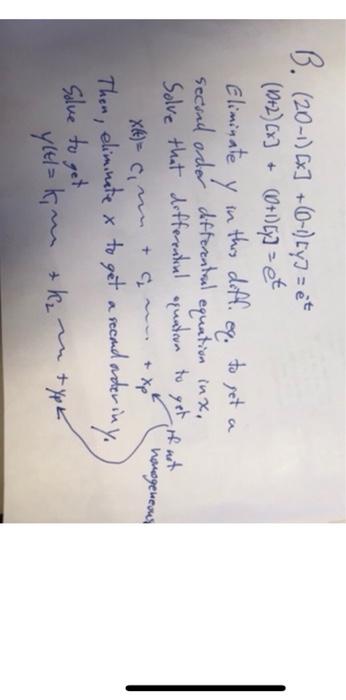 B. (2D-1)[x] + (D-1)[y] = e^t
(D+2)[x] + (D+1)[y] = e^t
Eliminate y in this diff. eq. to get a
second order differential equation in x.
Solve that differential equation to get
if not
homogeneous
x(t) = c₁ ~~ + c₂ ~~ + xp
Then, eliminate x to get a second order in y.
Solve to get
y(t) = k₁ ~~ + k₂ ~~ + yp